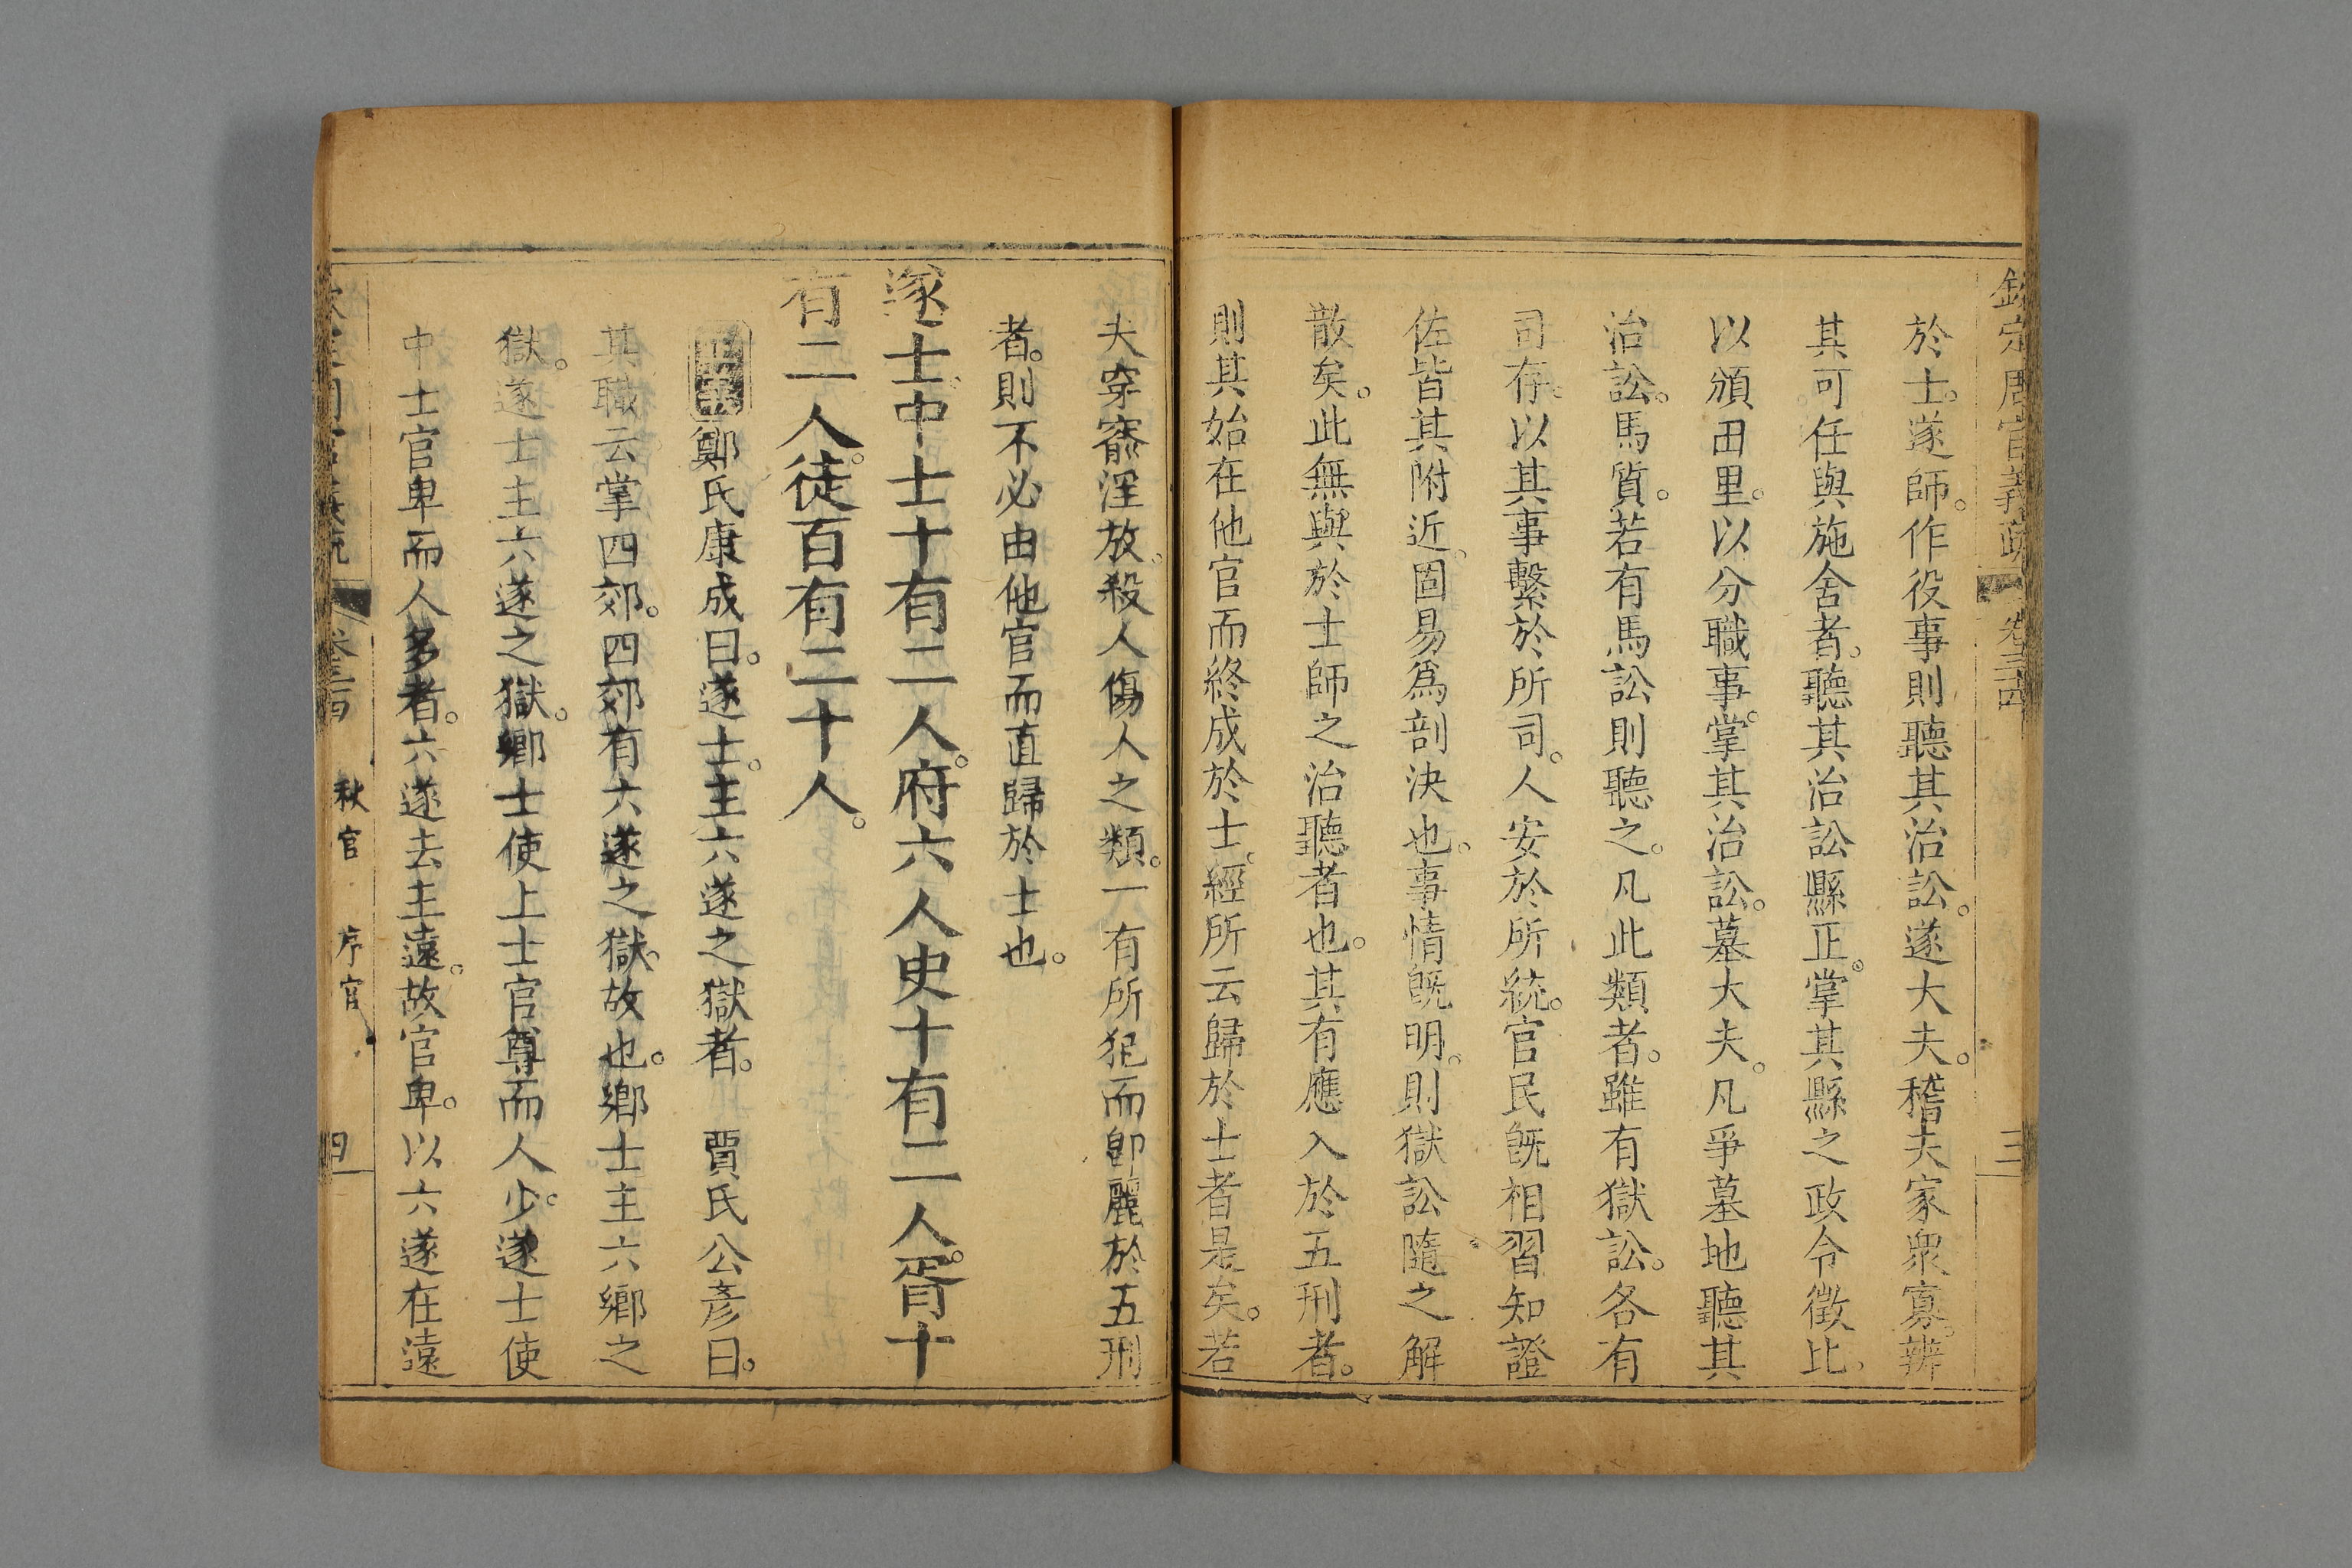 欽定周官義疏 卷三十四 三
於士。遂師。作役事則聽其治訟。遂大夫。稽夫家衆寡。辨
其可任與施舍者。聽其治訟縣正。掌其縣之政令徵比。
以頒田里。以分職事。掌其治訟。墓大夫。凡爭墓地聽其
治訟。馬質。若有馬訟則聽之。凡此類者。雖有獄訟。各有
司存。以其事繫於所司。人安於所統。官民旣相習知證
佐皆其附近。固易爲剖決也。事情旣明。則獄訟隨之解
散矣。此無與於士師之治聽者也。其有應入於五刑者。
則其始在他官而終成於士。經所云歸於士者是矣。若
夫穿窬淫放。殺人傷人之類。一有所犯而卽麗於五刑
者。則不必由他官而直歸於士也。
遂士。中士十有二人。府六人史十有二人。胥十
有二人。徒百有二十人。
正義鄭氏康成曰。遂士。主六遂之獄者。 賈氏公彥曰。
其職云掌四郊。四郊有六遂之獄。故也。鄉士主六鄉之
獄。遂士主六遂之獄。鄉士使上士官尊而人少。遂士使
中士官卑而人多者。六遂去主遠。故官卑。以六遂在遠
秋官 序官 四